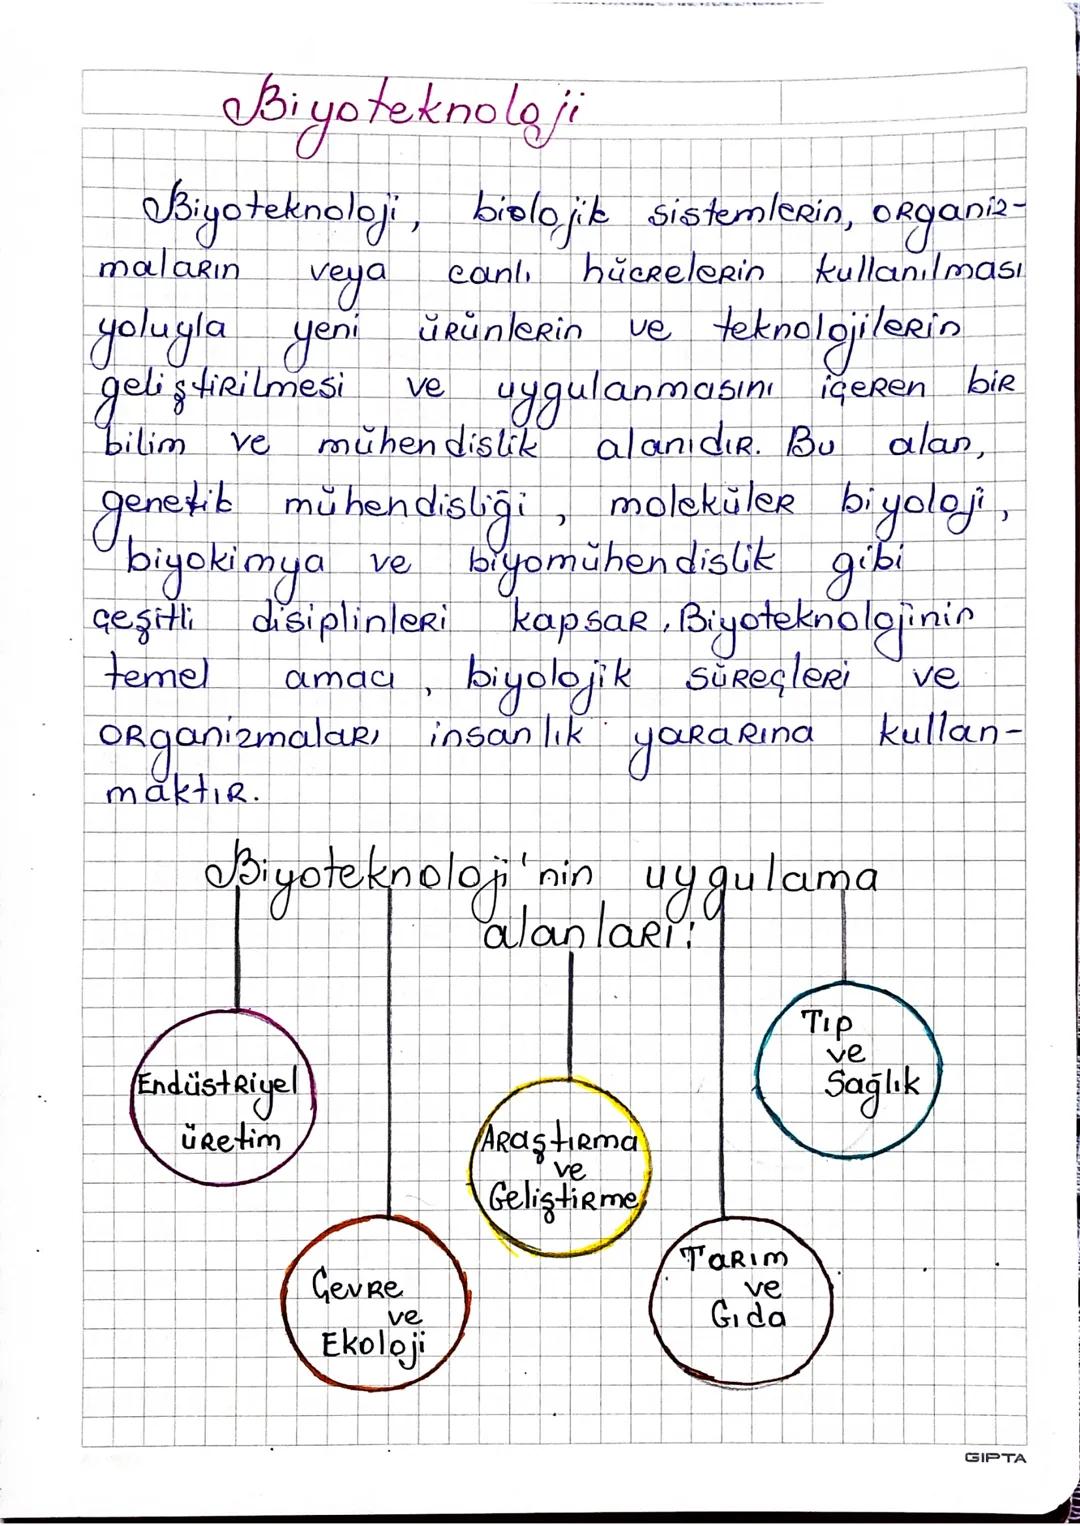 Biyoteknoloji
Biyoteknoloji, biolojik sistemlerin, organiz-
maların veya canlı hücrelerin kullanılması
yoluyla yeni ürünlerin ve teknolojilerin
geliştirilmesi ve uygulanmasını içeren bir
bilim ve mühendislik alanıdır. Bu alan,
genetik mühendisliği, moleküler biyoloji,
biyokimya ve biyomühendislik gibi
çeşitli disiplinleri kapsar. Biyoteknolojinin
temel amacı, biyolojik süreçleri ve
organizmaları insanlık yararına kullan-
maktır.
Biyoteknoloji'nin uygulama
alanları:
Endüstriyel
üretim
Çevre
ve
Ekoloji
Araştırma
ve
Geliştirme
Tarım
ve
Gıda
Tıp
ve
Sağlık
GIPTA